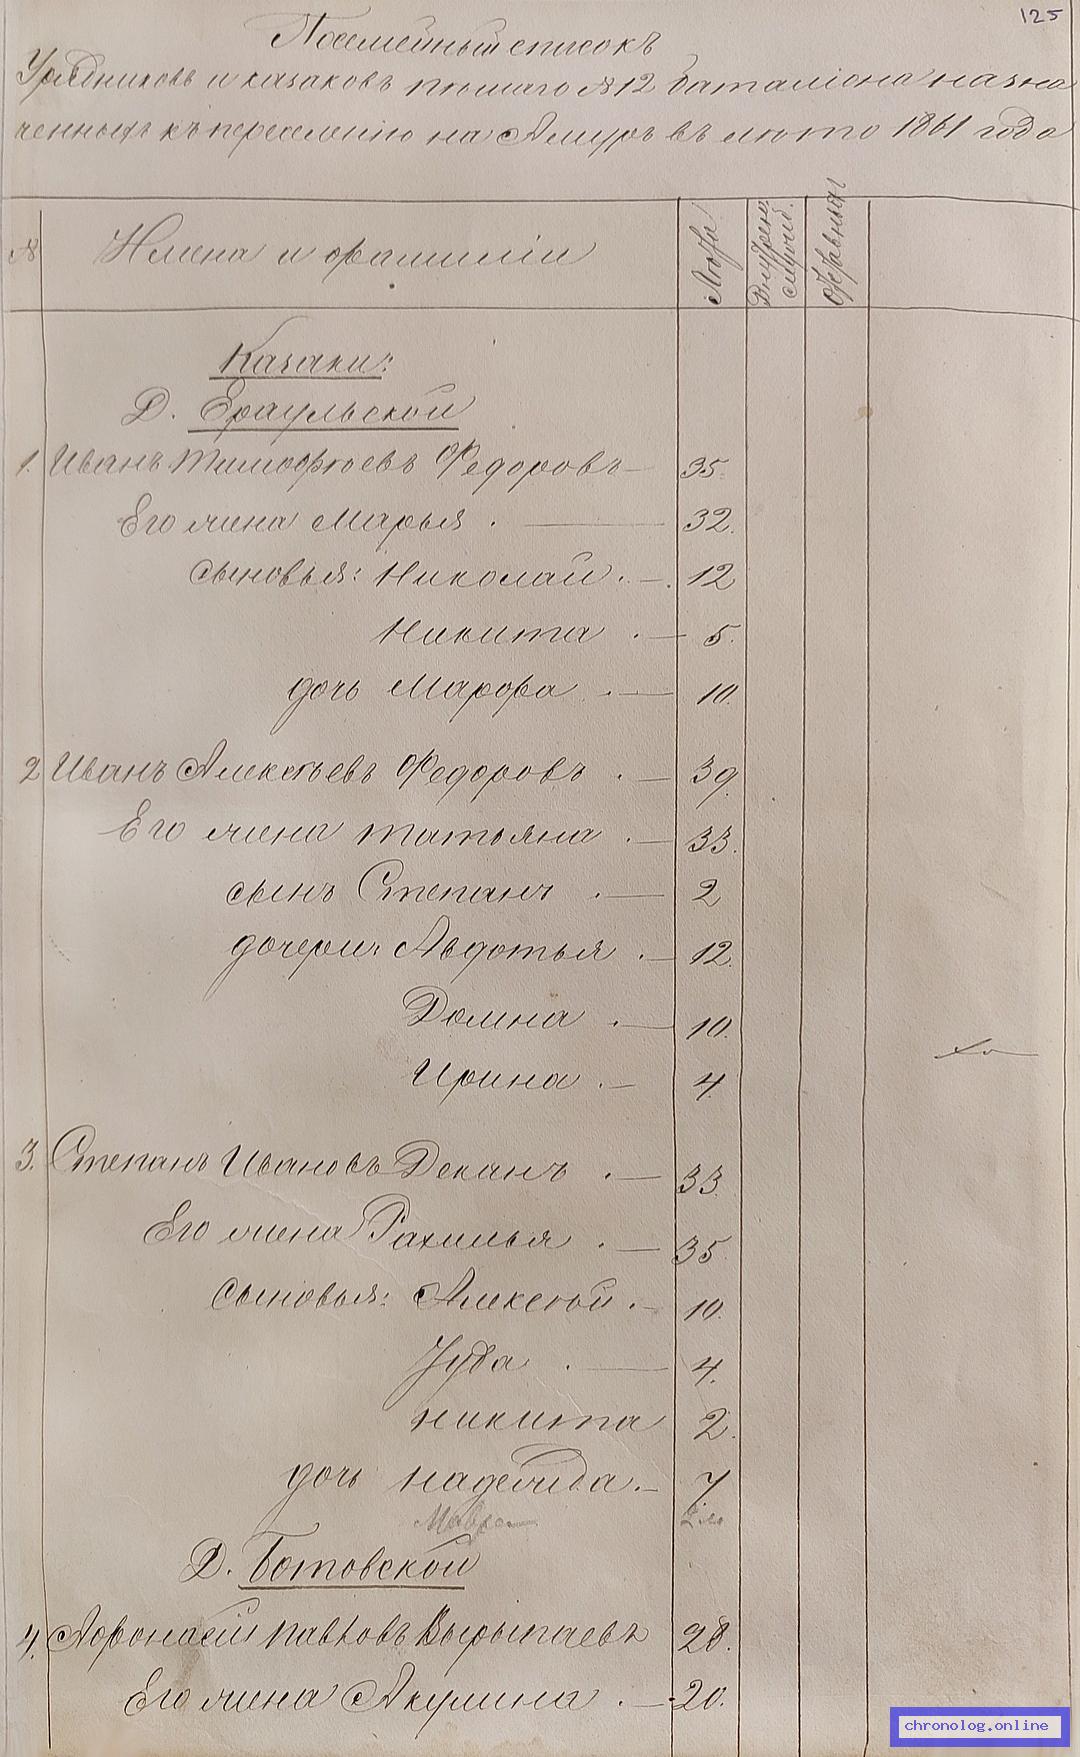 125
Посемейный списокъ
Урядниковъ и казаковъ пѣшаго №12 баталіона назна
ченныхъ къ переселенію на Амуръ въ лѣто 1861 года
№
Имена и фамиліи
Лѣта
Внутрен. служ.
Казаки:
Д. Ераульской
1. Иванъ Тимофѣевъ Федоровъ 35.
Его жена Марья . 32.
сыновья: Николай . 12
Никита . 5.
дочь Марфа . 10.
2 Иванъ Алексѣевъ Федоровъ . 39.
Его жена Татьяна . 33.
сынъ Степанъ . 2
дочери: Авдотья . 12.
Домна . 10.
Ирина . 4.
3. Степанъ Ивановъ Деканъ . 33.
Его жена Рахилья . 35.
Сыновья: Алексѣй . 10.
Іуда . 4.
Никита 2.
дочь Надежда . 7.
Мавра
Д. Ботовской
4. Афонасей Павловъ Вырыпаевъ 28.
Его жена Акулина . 20.
chronolog.online